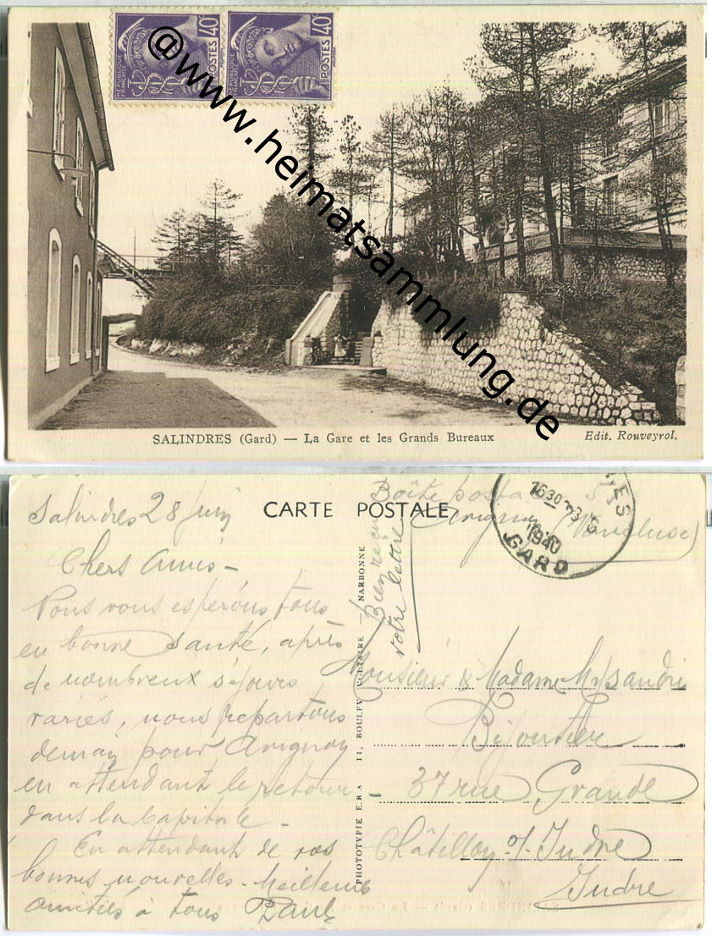 POSTES 40
POSTES 40
@www.heimatsammlung.de
SALINDRES (Gard) — La Gare et les Grands Bureaux
Edit. Rouveyrol.
CARTE POSTALE
Boîte posta
Avignon (Vaucluse)
Bien reçu
votre lettre
1630
1940
GARD
Salindres 28 juin
Chers Amis -
Nous vous espérons tous
en bonne santé, après
de nombreux séjours
variés, nous repartons
demain pour Avignon
en attendant le retour
dans la Capitale -
En attendant de vos
bonnes nouvelles - Meilleures
amitiés à tous Paul
PHOTOTYPIE E.R.A 11, BOULEV. VOLTAIRE — NARBONNE
Monsieur & Madame
Bijoutier
37 rue Grande
Châtillon s/ Indre
Indre